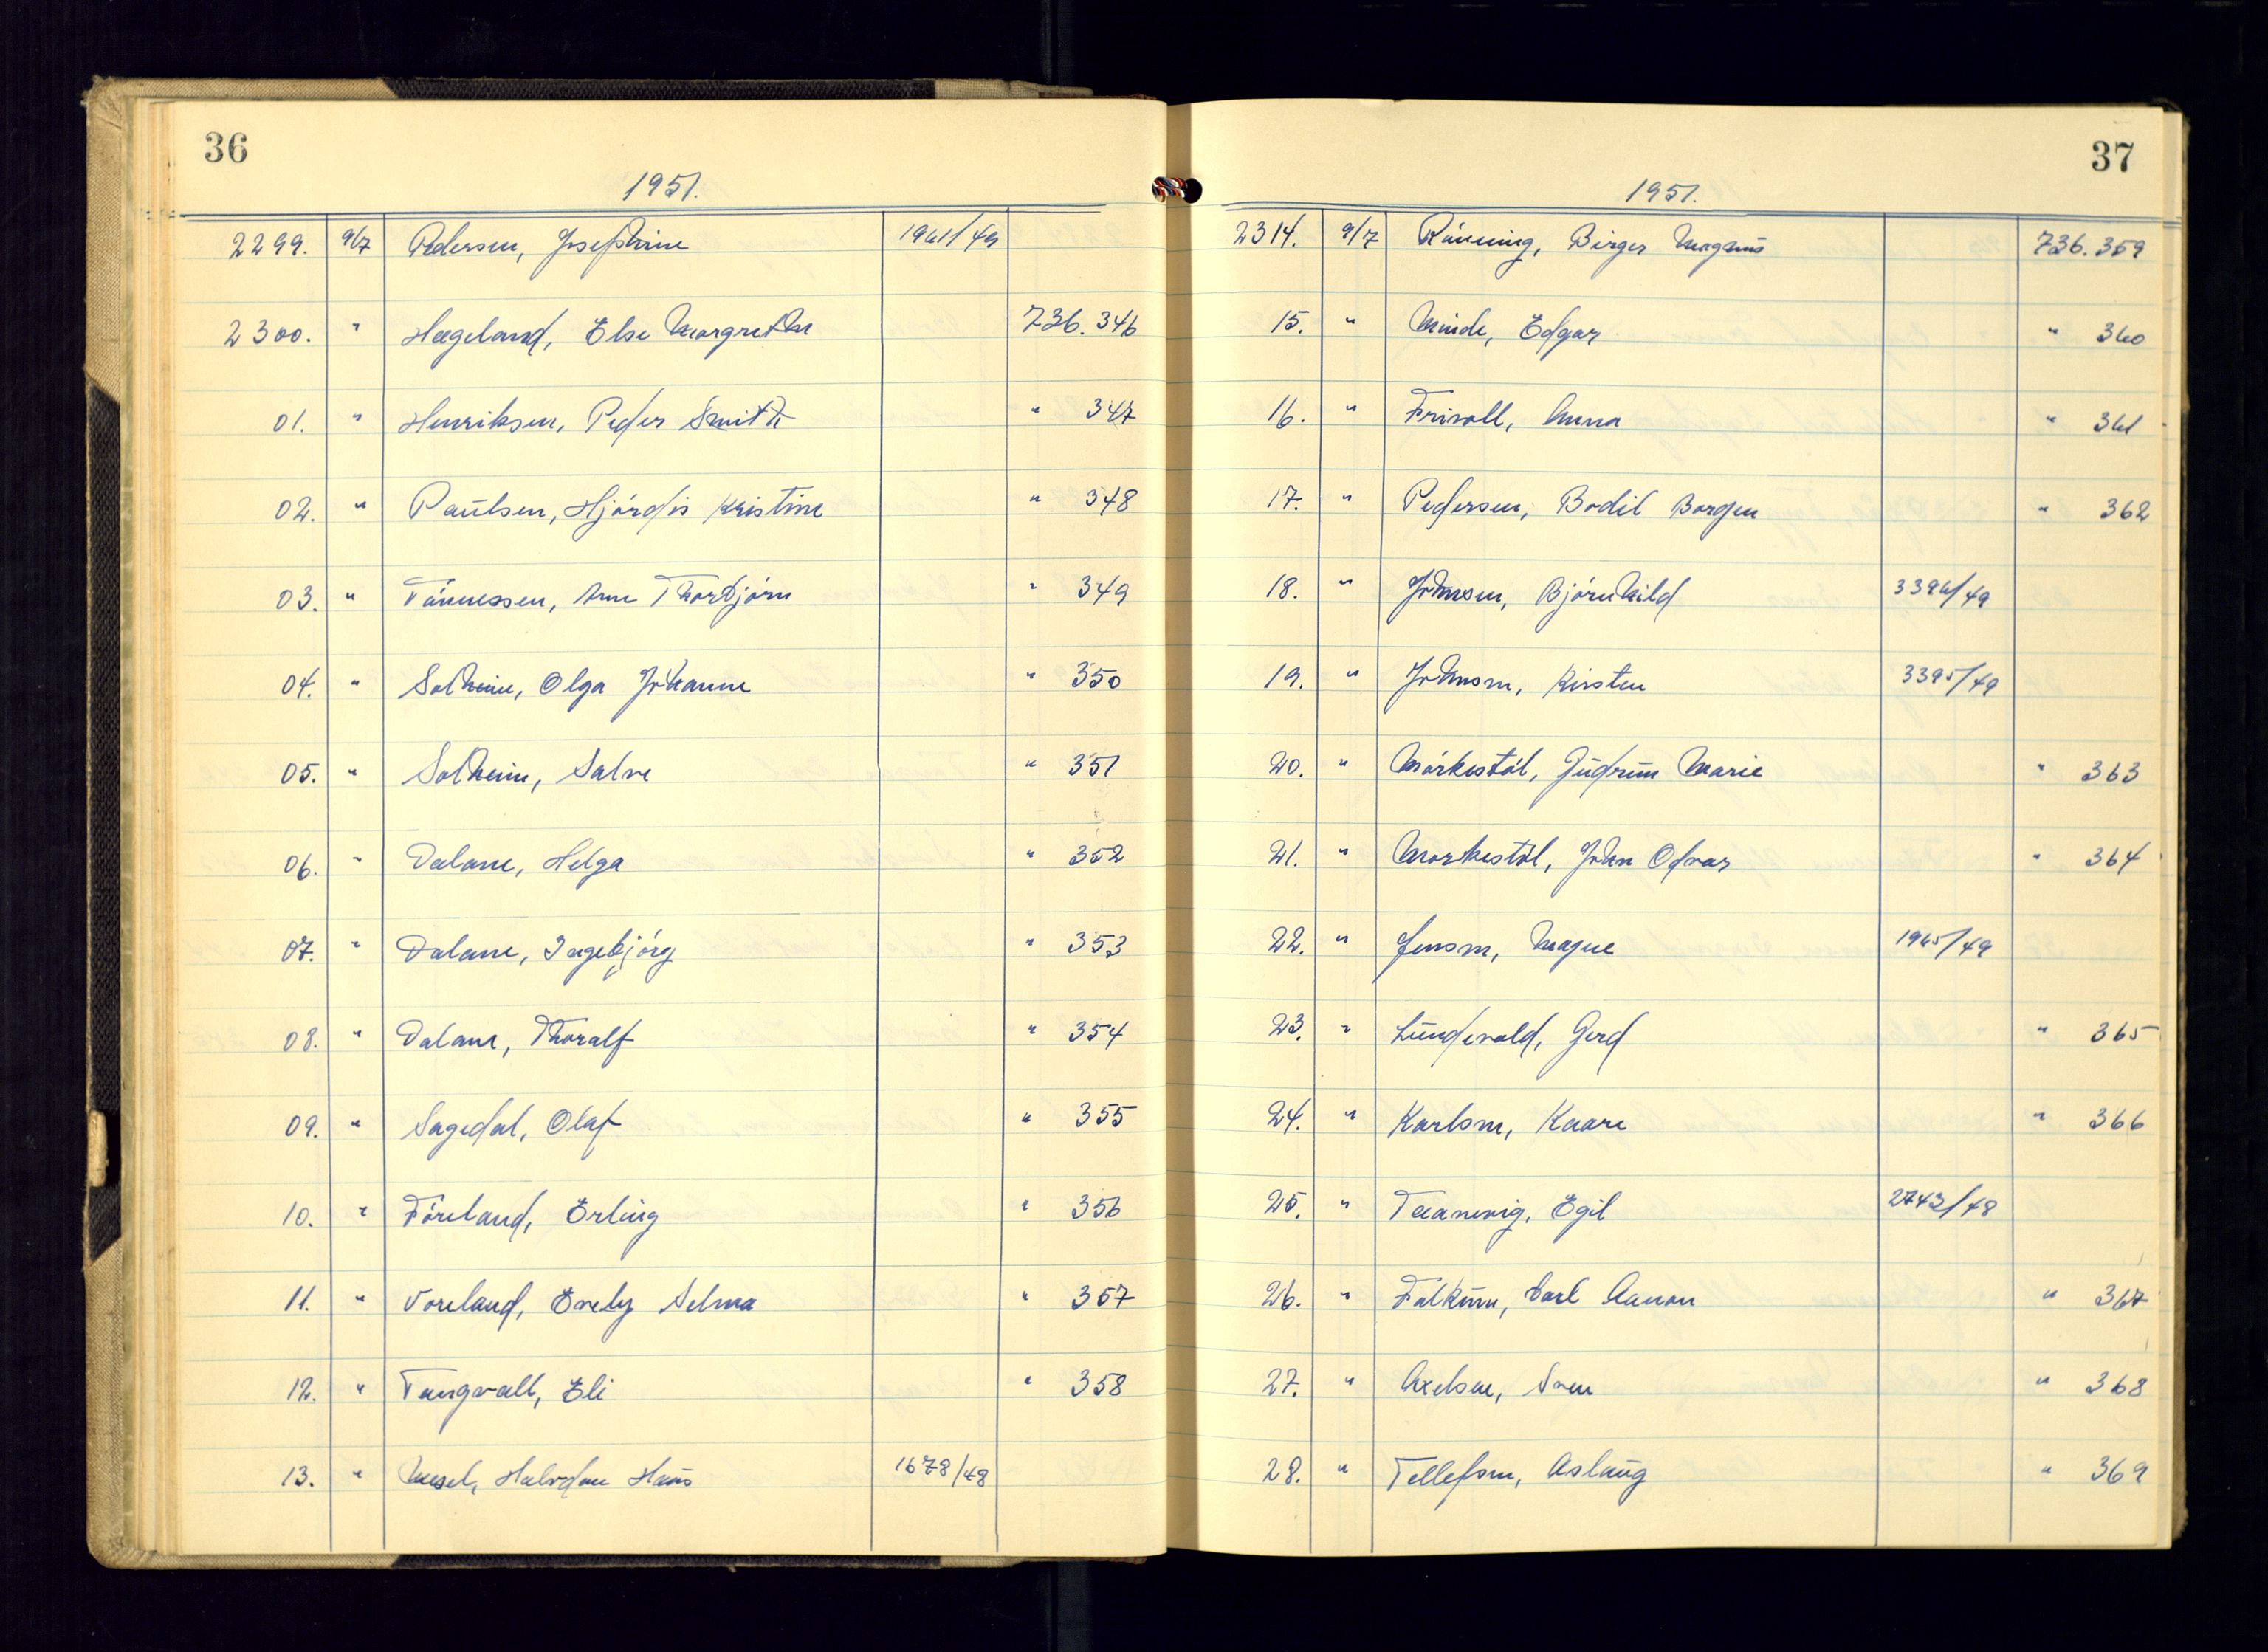 36
1951.
2299. 9/7 Pedersen, Josephine 1961/49
2300. " Hægeland, Else Margrethe 736.346
01. " Henriksen, Peder Smith " 347
02. " Paulsen, Hjördis Kristine " 348
03. " Tönnessen, Arne Thorbjörn " 349
04. " Solheim, Olga Johanne " 350
05. " Solheim, Salve " 351
06. " Dalane, Helga " 352
07. " Dalane, Ingebjörg " 353
08. " Dalane, Thoralf " 354
09. " Sagedal, Olaf " 355
10. " Föreland, Erling " 356
11. " Voreland, Evely Selma " 357
12. " Tangvall, Eli " 358
13. " Mesel, Halvdan Hans 1678/48
37
1951.
2314. 9/7 Rönning, Birger Magnus 736.359
15. " Minde, Edgar " 360
16. " Frivoll, Anna " 361
17. " Pedersen, Bodil Borgen " 362
18. " Johnsen, Björnhild 3394/49
19. " Johnsen, Kirsten 3395/49
20. " Mörkestöl, Gudrun Marie " 363
21. " Morkestöl, John Odvar " 364
22. " Jensen, Magne 1965/49
23. " Lundevold, Gerd " 365
24. " Karlsen, Kaare " 366
25. " Taanevig, Egil 2743/48
26. " Falkum, Carl Aanon " 367
27. " Axelsen, Sven " 368
28. " Tellefsen, Aslaug " 369